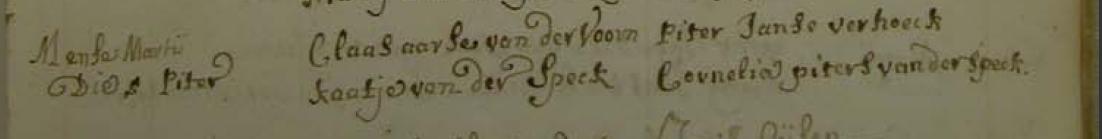 Mense Martii Claas aarse van der Voorn Piter Janse verhoeck
Die 8 Piter kaatje van der Speck Cornelia piters van der speck.